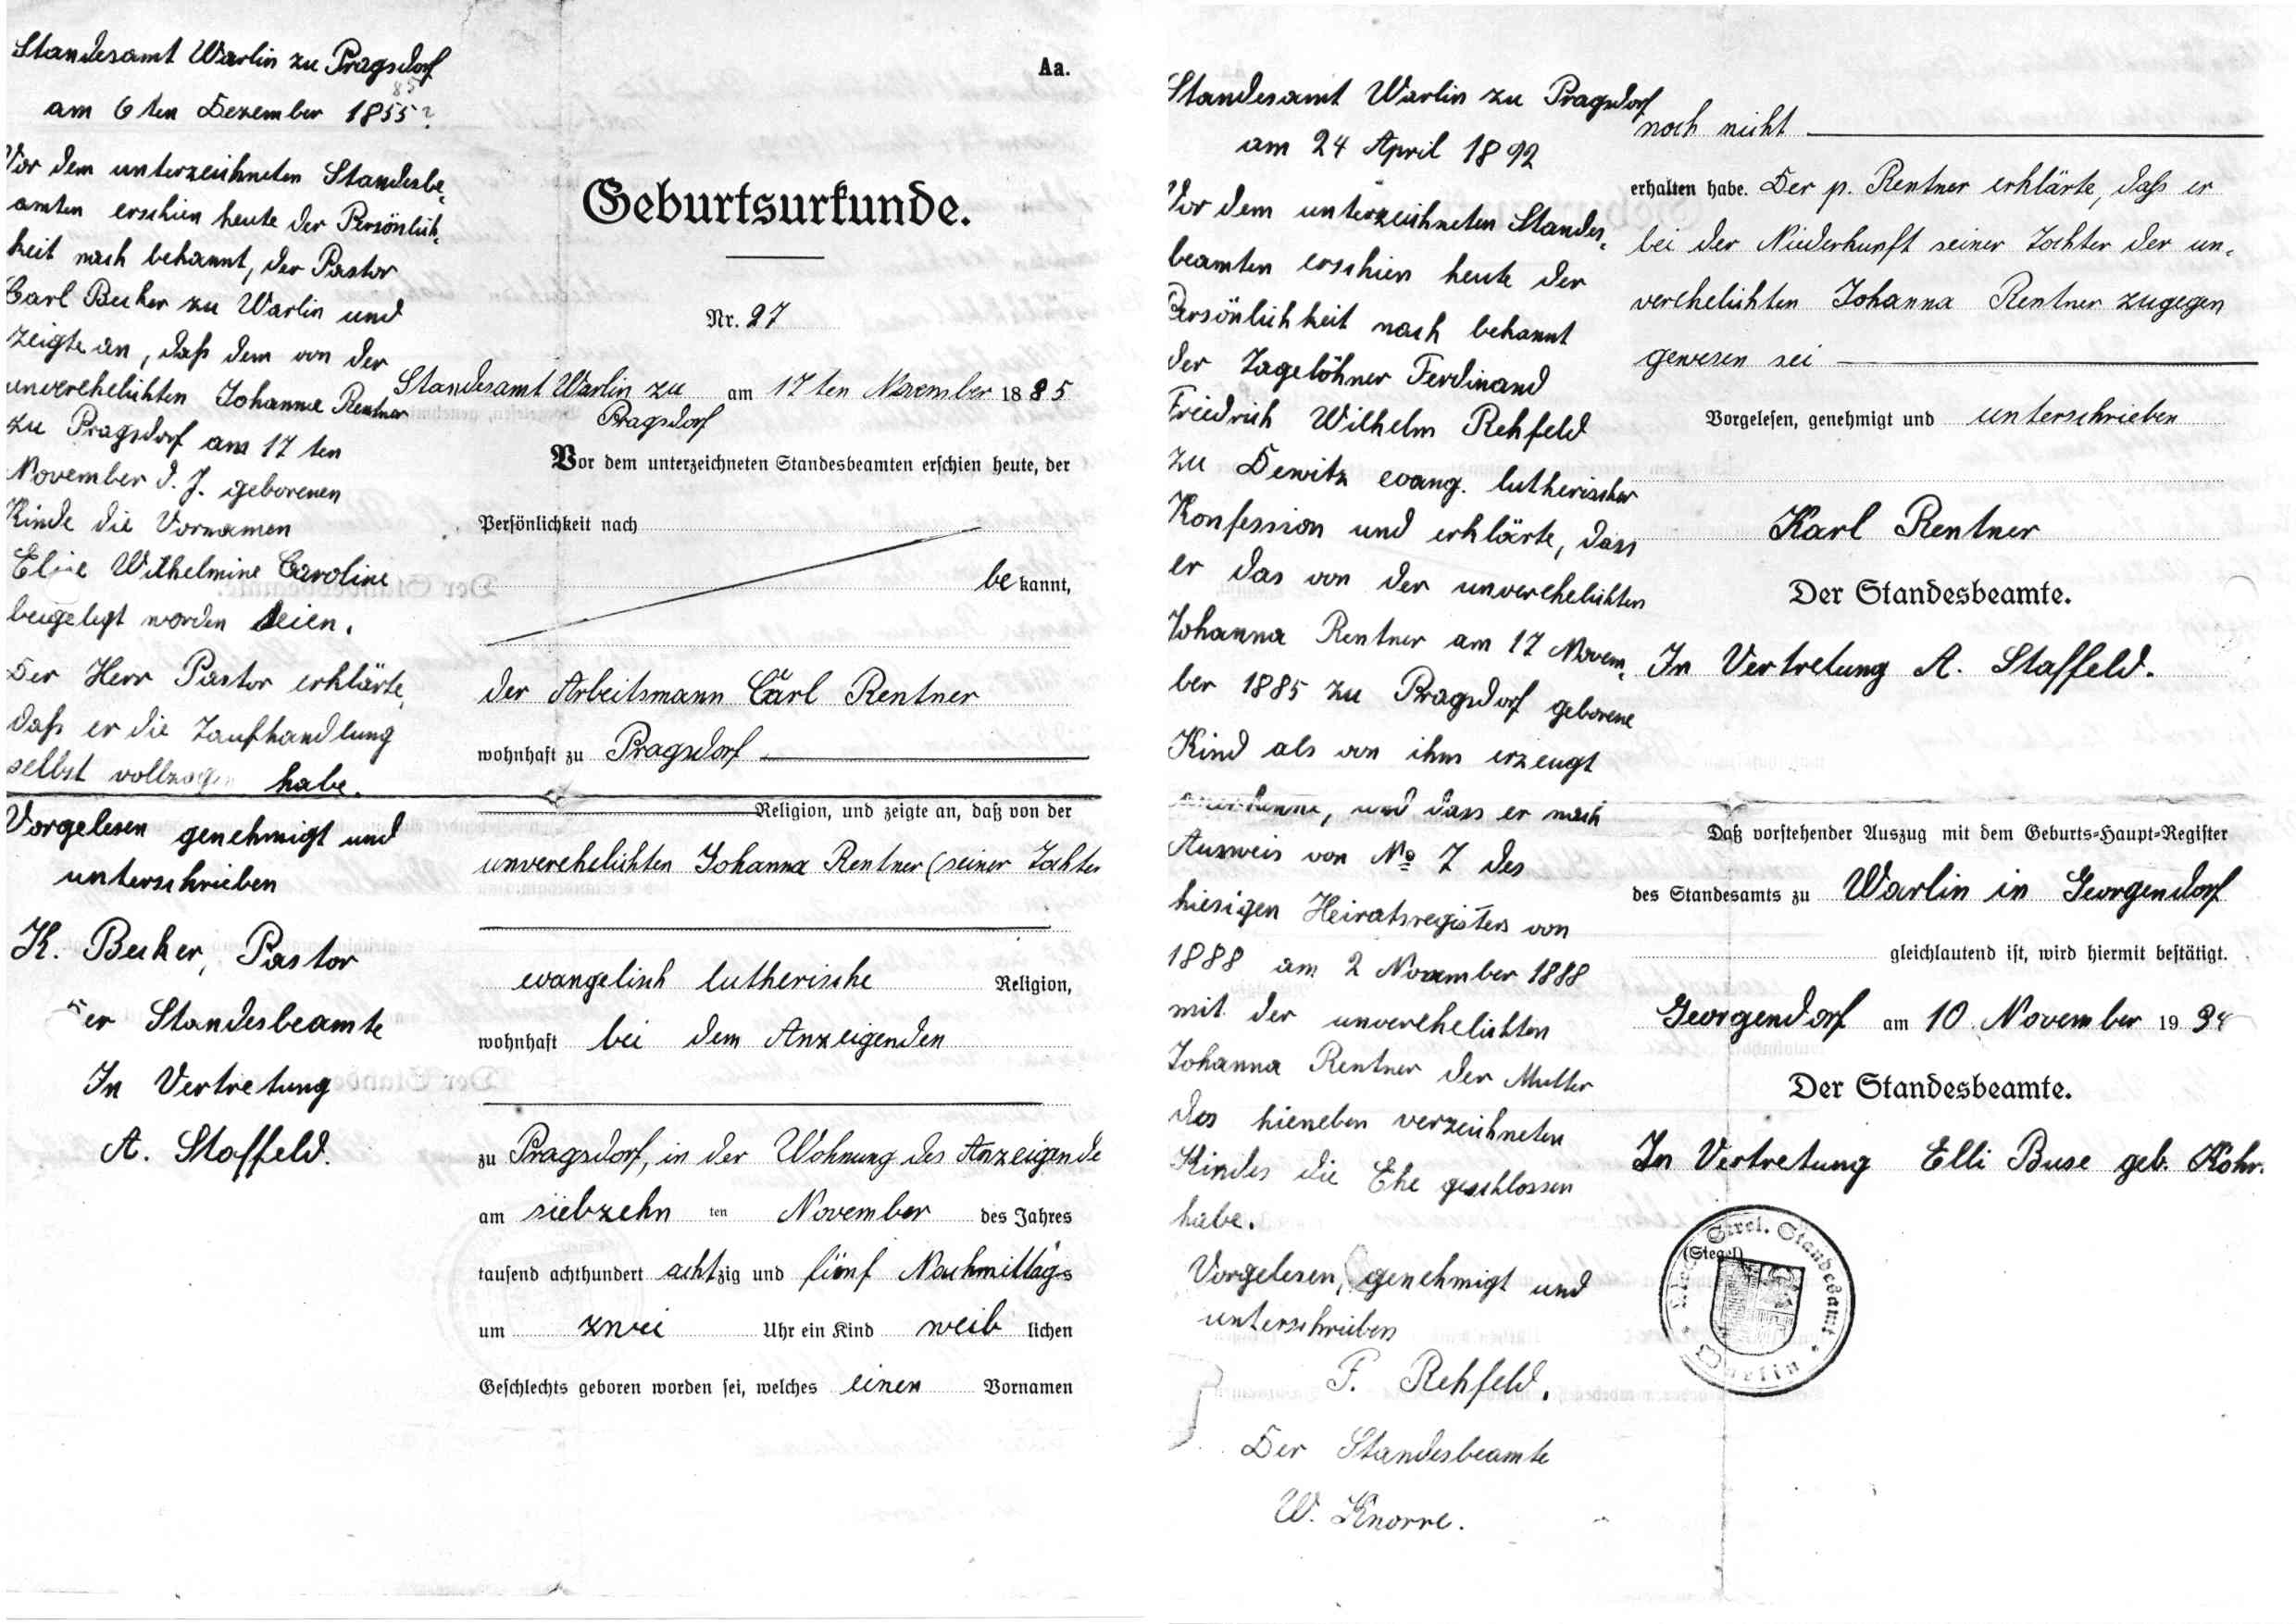 Standesamt Warlin zu Pragsdorf
85
am 6 ten Dezember 1855?
Vor dem unterzeichneten Standesbe-
amten erschien heute der Persönlich-
keit nach bekannt, der Pastor
Carl Becker zu Warlin und
zeigte an, daß dem von der
unverehelichten Johanna Rentner
zu Pragsdorf am 17 ten
November d. J. geborenen
Kinde die Vornamen
Elise Wilhelmine Caroline
beigelegt worden seien.
Der Herr Pastor erklärte,
daß er die Taufhandlung
selbst vollzogen habe.
Vorgelesen genehmigt und
unterschrieben
K. Becker, Pastor
Der Standesbeamte
In Vertretung
A. Staffeld.
Aa.
Geburtsurkunde.
Nr. 27
Standesamt Warlin zu am 17 ten November 1885
Pragsdorf
Vor dem unterzeichneten Standesbeamten erschien heute, der
Persönlichkeit nach
be kannt,
der Arbeitsmann Carl Rentner
wohnhaft zu Pragsdorf
Religion, und zeigte an, daß von der
unverehelichten Johanna Rentner (seiner Tochter
evangelisch lutherische Religion,
wohnhaft bei dem Anzeigenden
zu Pragsdorf, in der Wohnung des Anzeigende
am siebzehn ten November des Jahres
tausend achthundert achtzig und fünf Nachmittags
um zwei Uhr ein Kind weib lichen
Geschlechts geboren worden sei, welches einen Vornamen
Standesamt Warlin zu Pragsdorf
am 24 April 1892
Vor dem unterzeichneten Standes-
beamten erschien heute der
Persönlichkeit nach bekannt
der Tagelöhner Ferdinand
Friedrich Wilhelm Rehfeld
zu Dewitz evang. lutherischer
Konfession und erklärte, dass
er das von der unverehelichten
Johanna Rentner am 17 Novem-
ber 1885 zu Pragsdorf geborene
Kind als von ihm erzeugt
anerkenne, und dass er nach
Ausweis von No 7 des
hiesigen Heiratsregisters von
1888 am 2 November 1888
mit der unverehelichten
Johanna Rentner der Mutter
des hieneben verzeichneten
Kindes die Ehe geschlossen
habe.
Vorgelesen, genehmigt und
unterschrieben
F. Rehfeld.
Der Standesbeamte
W. Knorre.
noch nicht
erhalten habe. Der p. Rentner erklärte, daß er
bei der Niederkunft seiner Tochter der un-
verehelichten Johanna Rentner zugegen
gewesen sei
Vorgelesen, genehmigt und unterschrieben
Karl Rentner
Der Standesbeamte.
In Vertretung A. Staffeld.
Daß vorstehender Auszug mit dem Geburts-Haupt-Register
des Standesamts zu Warlin in Georgendorf
gleichlautend ist, wird hiermit bestätigt.
Georgendorf am 10. November 1934
Der Standesbeamte.
In Vertretung Elli Buse geb. Kohr.
(Siegel)
Strel. Standesamt
Warlin